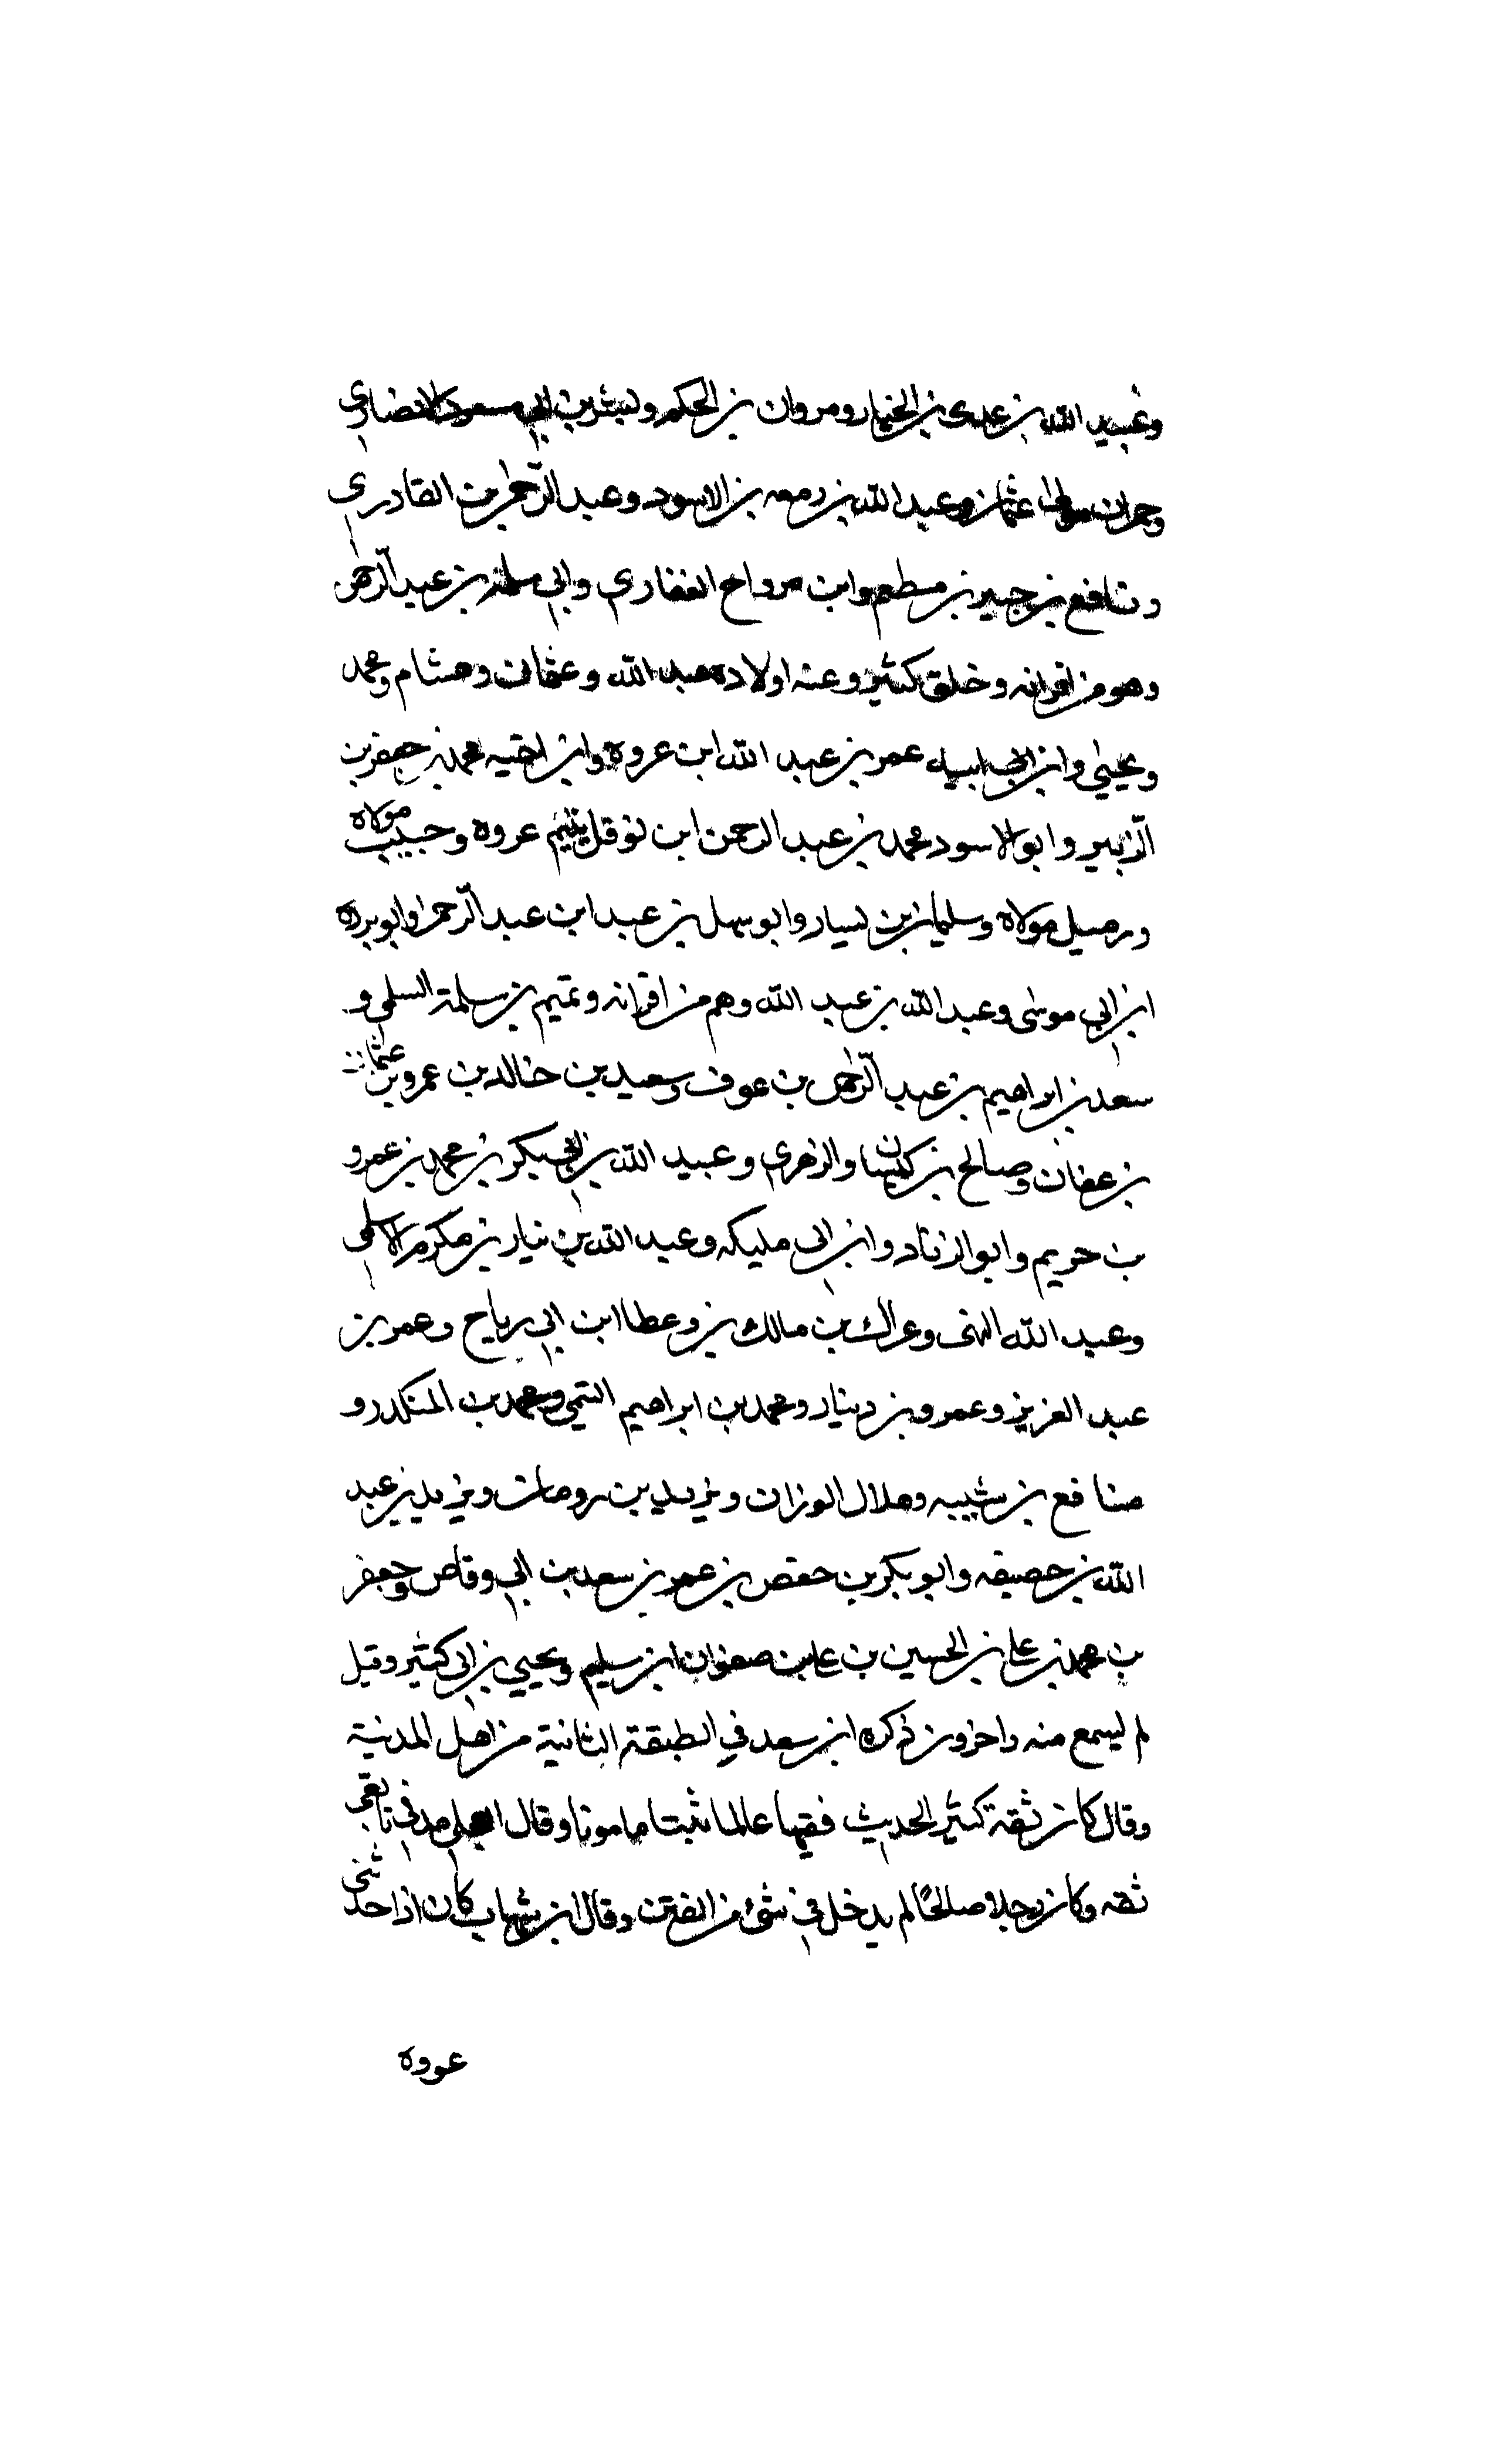 وعبيد الله بن عدى بن الخيار ومروان بن الحكم وبشر بن ابي مسعود الانصاري
وحمران مولى عثمان وعبد الله بن زمعه بن الاسود وعبد الرحمن بن القادري
ونافع بن جبير بن مطعم وابن مرواح الغفاري وابي سلمة بن عبد الرحمن
وهو من اقرانه وخلق كثير وعنه اولاده عبد الله وعثمان وهشام ومحمد
ويحيى وابن ابن ابنه عمر بن عبد الله ابن عروه وابن اخيه محمد بن جعفر بن
الزبير وابو الاسود محمد بن عبد الرحمن ابن نوفل يتيم عروه وحبيب مولاه
وزميل مولاه وسليمان بن يسار وابو سهل بن عبد ابن عبد الرحمن وابو برده
ابن ابي موسى وعبد الله بن عبد الله وهم من اقرانه وتميم بن سلمة السلمي و
سعد بن ابراهيم بن عبد الرحمن بن عوف وسعيد بن خالد بن عمرو بن عثمان
بن عفان وصالح بن كيسان والزهري وعبيد الله بن ابي بكر بن محمد بن عمرو
بن حريم وابو الزناد وابن ابي مليكه وعبد الله بن نيار بن مكرم الاسلمي
وعبد الله البهى وعراك بن مالك بن وعطا ابن ابي رباح وعمر بن
عبد العزيز وعمرو بن دينار ومحمد بن ابراهيم التيمي ومحمد بن المنكدر و
صنافع بن شيبه وهلال الوزان ويزيد بن رومان ويزيد بن عبد
الله بن حصيفه وابو بكر بن حفص بن عمر بن سعد بن ابي وقاص وجعفر
بن محمد بن علي بن الحسين بن علي بن صفوان ابن سليم ويحيي بن ابي كثير وقيل
لم يسمع منه واخرون ذكره ابن سعد في الطبقة الثانية من اهل المدنية
وقال كان ثقة كثير الحديث فقيها عالما ثبتا مامونا وقال العجلي مدني تابعي
ثقه وكان رجلا صالحًا لم يدخل في شئ من الفتن وقال ابن شهاب كان اذا حدثني
عروه